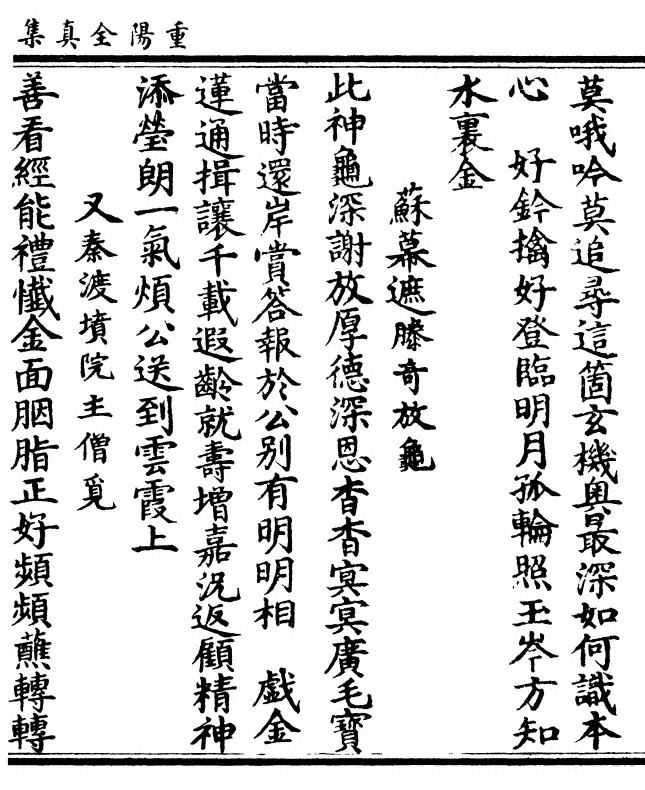 重陽全真集
莫哦吟莫追尋這箇玄機奧最深如何識本
心　好鈐擒好登臨明月孤輪照玉岑方知
水裏金
蘇幕遮滕奇放龜
此神龜深謝放厚德深恩杳杳寘寘廣毛寶
當時還岸賞答報於公別有明明相　戲金
蓮通揖讓千載遐齡就壽增嘉況返顧精神
添瑩朗一氣煩公送到雲霞上
又秦渡墳院主僧覓
善看經能禮懺金面胭脂正好頻頻蘸轉轉